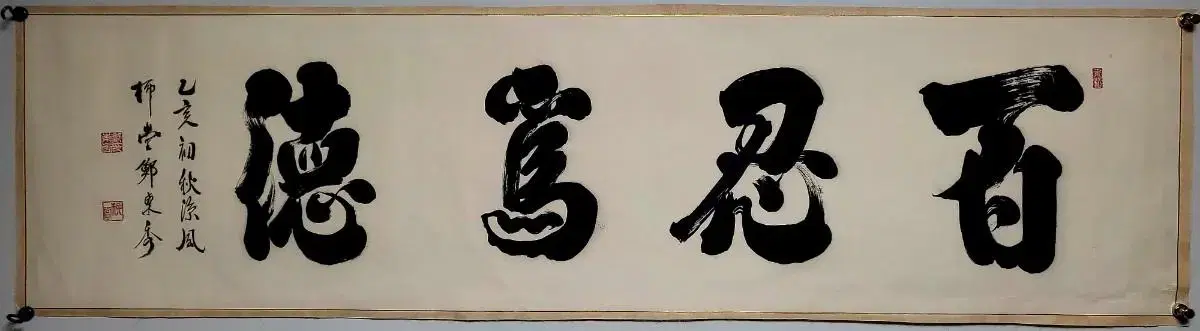 百忍為德
乙亥初秋涼風
柿堂鄭東秀